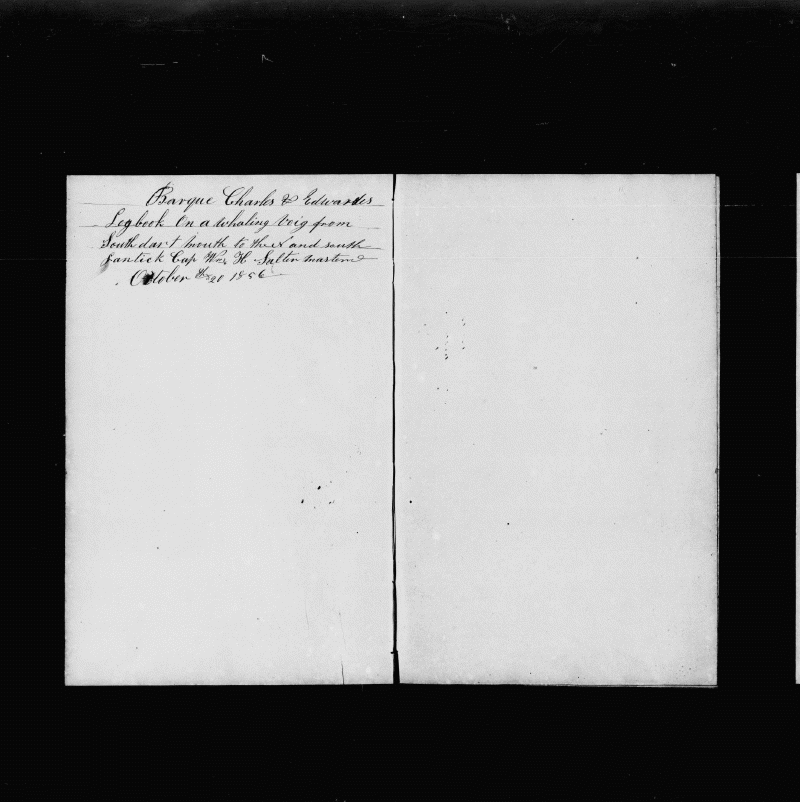 Barque Charles & Edwards
Logbook On a whaling Voig from
South dart mouth to the N and south
Lantick Cap Wm H Salter master
October the 20 1856